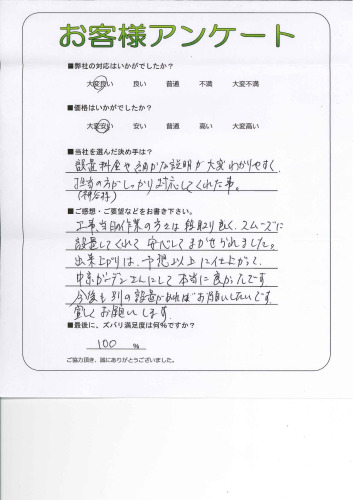 お客様アンケート
■弊社の対応はいかがでしたか？
大変良い 良い 普通 不満 大変不満
■価格はいかがでしたか？
大変安い 安い 普通 高い 大変高い
■当社を選んだ決め手は？
設置料金や細かな説明が大変わかりやすく
担当の方がしっかり対応してくれた事。
■ご感想・ご要望などをお書き下さい。
工事当日の作業の方々は段取り良く、スムーズに
設置してくれて安心してまかせられました。
出来上がりは、予想以上に仕上がって
中京ガーデンさんにして本当に良かったです
今後も別の設置があればお願いしたいです
宜しくお願いします。
■最後に、ズバリ満足度は何％ですか？
100 ％
ご協力頂き、誠にありがとうございました。